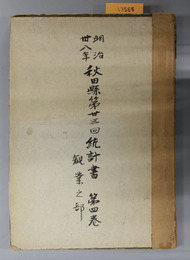 明治
卅八年
秋田縣第廿三回統計書 第四巻
勧業之部